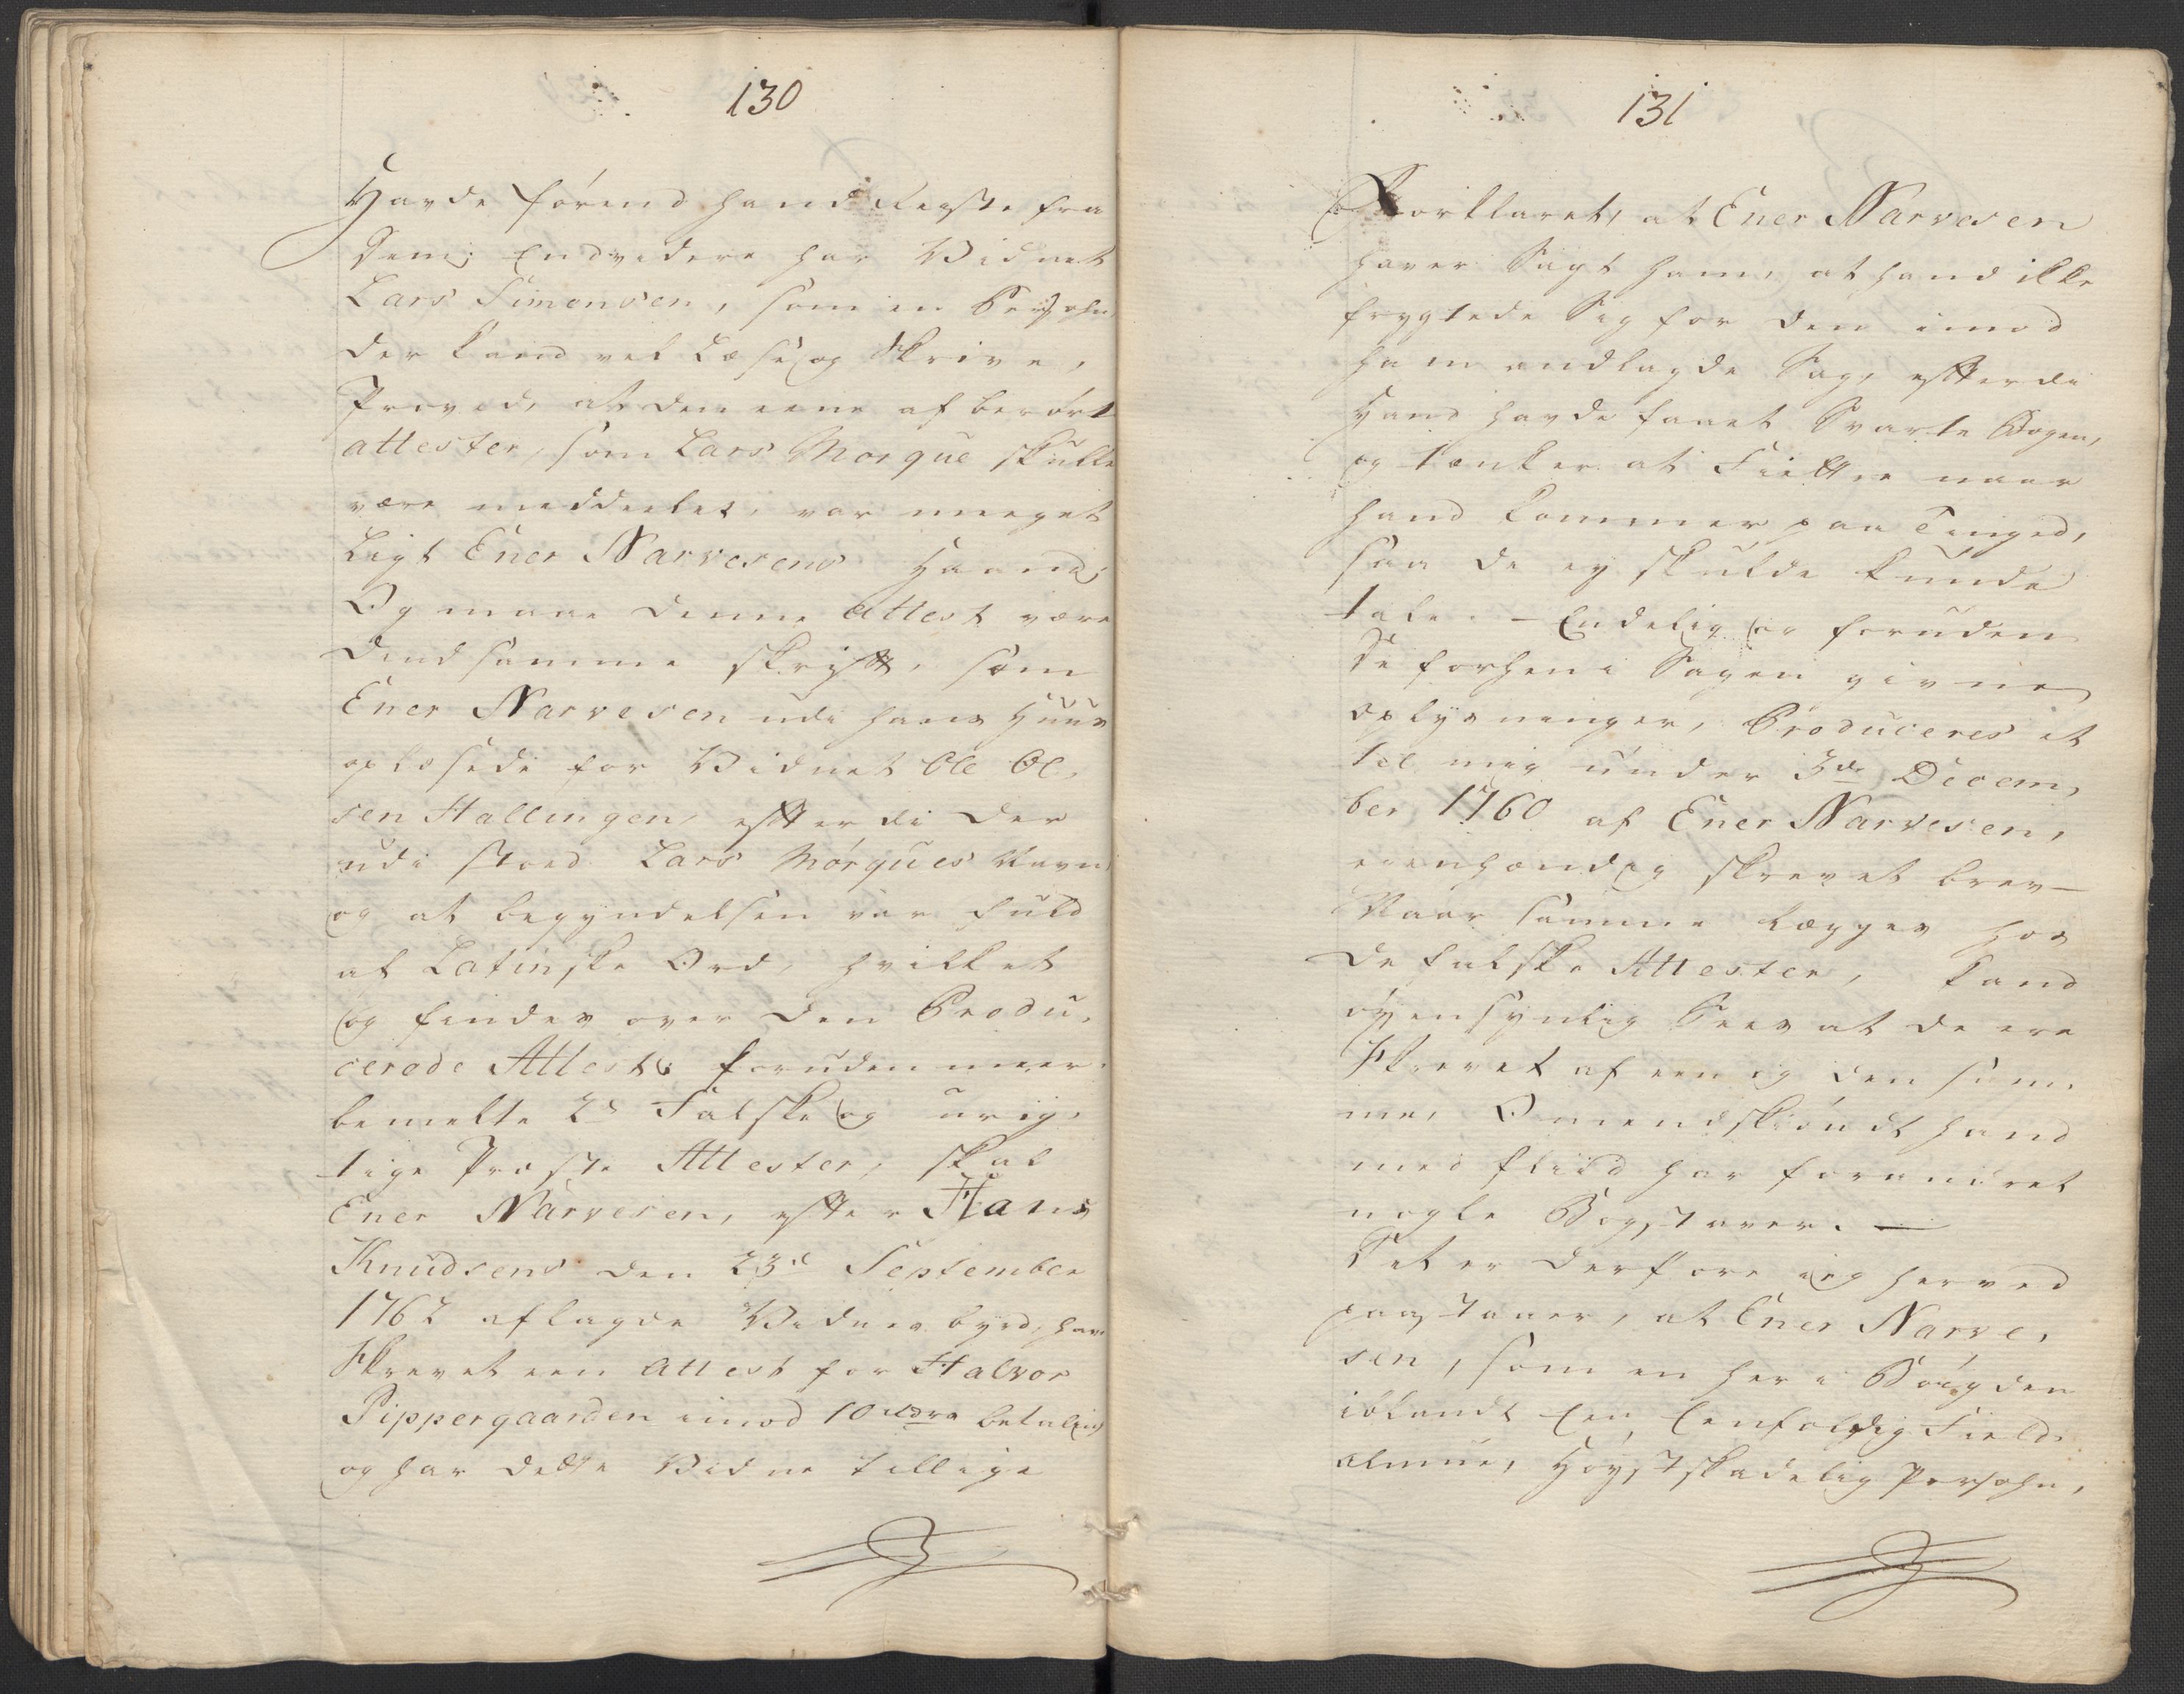 130
Havde førend hand Reyste fra
dem; Endvidere har Vidnet
Lars Simensen, som en Persohn
der kand vel Læse og Skrive,
Prøved, at den eene af berørte
attester, som Lars Morque skulle
være meddeelet, var meeget
Ligt Ener Narvesens Haand;
Og maae denne attest være
dend samme skrifft, som
Ener Narvesen udi hans Huus
oplæsede for Vidnet Ole Ol,
sen Hallingen, efftterdi der
udi stoed Lars Mørques Navn
og at begyndelsen var fuld
af Latinske Ord, hvilket
og findes over den Produ,
cerede Attest; foruden meer,
bemelte 2de Falske og urig,
tige Præste Attester, skal
Ener Narvesen, effter Hans
Knudsens den 23d September
1762 aflagde Vidnesbyrd, have
Skrevet een attest for Halvor
Pippergaarden imod 10 rdrs betaling
og har dette Vidne tillige
131
Forklaret, at Ener Narvesen
haver Sagt ham, at hand ikke
frygtede Sig for den imod
ham andlagde Sag, effterdi
Hand havde faaet Svarte Bogen,
og tænker at Fiettre naar
hand kommer paa Tinged,
saa de ey skulde kunde
tale. – Endelig og foruden
de forhen i Sagen givne
oplysninger, Produceres et
til mig under 3de Decem,
ber 1760 af Ener Narvesen,
eienhændig skrevet brev –
Naar samme lægges hos
de falske Attester, kand
øyensynlig Sees at de ere
Skrevet af een og den sam,
me, Omendskiøndt hand
med fliid har forandret
nogle Bogstaver. —
Det er derfore ieg herved
paastaaer, at Ener Narve,
sen, som en her i Bøygden
iblandt Een Eenfoldig Field,
almue, Høystskadelig Persohn,